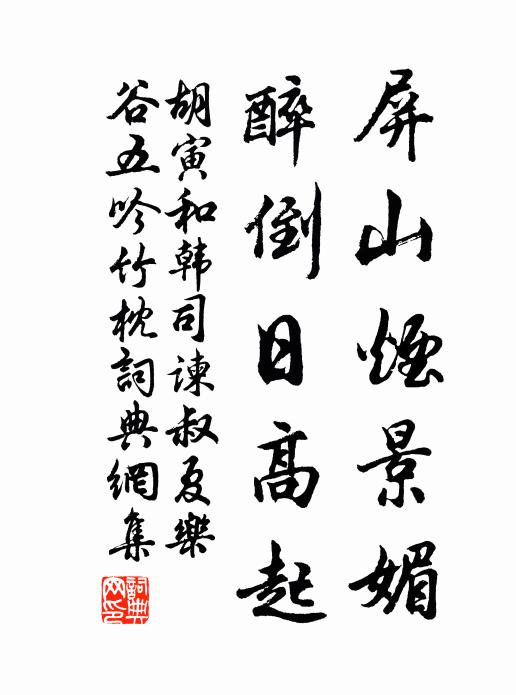 屏山煙景媚
醉倒日高起
胡寅和韩司諫叔夏樂
谷五吟竹枕詞典網集
詞典网印